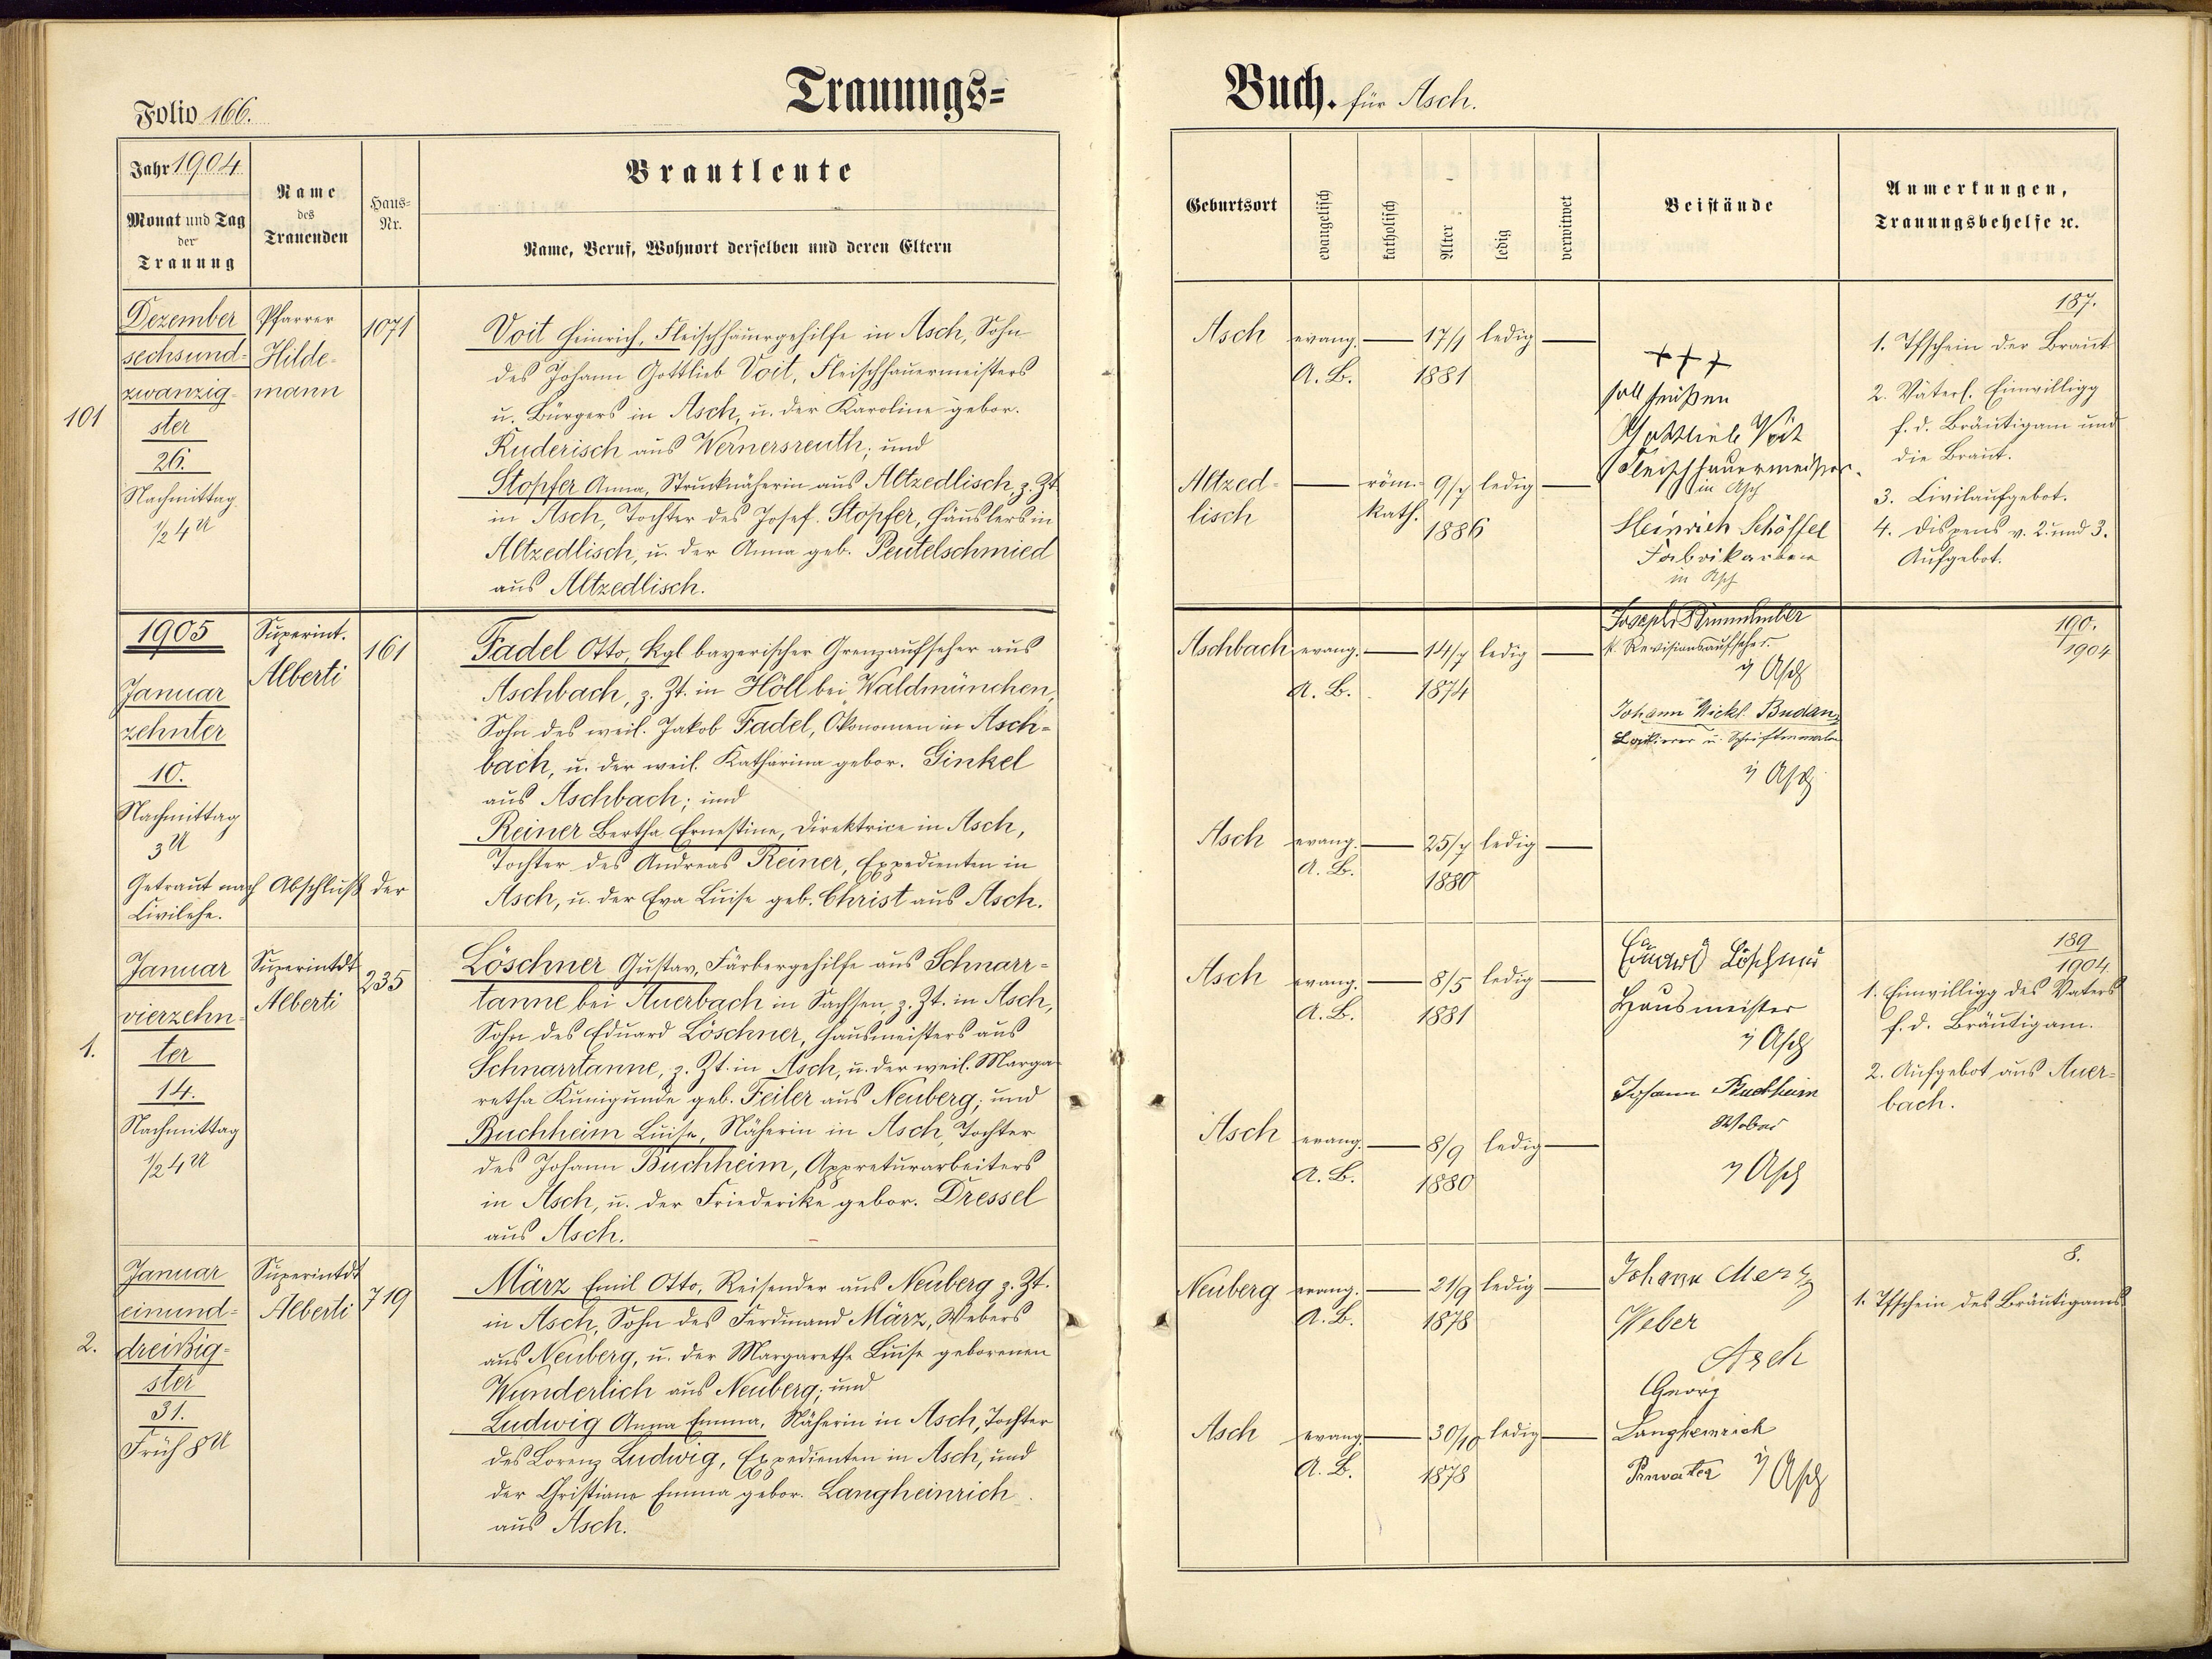 Trauungs=
Folio 166.
Jahr 1904
Monat und Tag
der
Trauung
Name
des
Trauenden
Haus=
Nr.
Brautleute
Name, Beruf, Wohnort derselben und deren Eltern
101
Dezember
sechsund=
zwanzig=
ster
26.
Nachmittag
1/2 4 U
Pfarrer
Hilde=
mann
1071
Voit Heinrich, Fleischhauergehilfe in Asch, Sohn
des Johann Gottlieb Voit, Fleischhauermeisters
u. Bürgers in Asch, u. der Karoline gebor.
Ruderisch aus Wernersreuth; und
Stopfer Anna, Strucknäherin aus Altzedlisch, z. Zt.
in Asch, Tochter des Josef Stopfer, Häuslers in
Altzedlisch, u. der Anna geb. Peutelschmied
aus Altzedlisch.
1905
Januar
zehnter
10.
Nachmittag
3 U
Getraut nach Abschluß der
Civilehe.
Superint.
Alberti
161
Fadel Otto, Kgl bayerischer Grenzaufseher aus
Aschbach, z. Zt. in Höll bei Waldmünchen,
Sohn des weil. Jakob Fadel, Ökonomen in Asch=
bach, u. der weil. Katharina gebor. Ginkel
aus Aschbach; und
Reiner Bertha Ernestine, Direktrice in Asch,
Tochter des Andreas Reiner, Expedienten in
Asch, u. der Eva Luise geb. Christ aus Asch.
1.
Januar
vierzehn=
ter
14.
Nachmittag
1/2 4 U
Superintdt
Alberti
235
Löschner Gustav, Färbergehilfe aus Schnarr=
tanne bei Auerbach in Sachsen, z. Zt. in Asch,
Sohn des Eduard Löschner, Hausmeisters aus
Schnarrtanne, z. Zt. in Asch, u. der weil. Marga=
retha Kunigunde geb. Feiler aus Neuberg; und
Buchheim Luise, Näherin in Asch, Tochter
des Johann Buchheim, Appreturarbeiters
in Asch, u. der Friederike gebor. Dressel
aus Asch.
2.
Januar
einund=
dreißig=
ster
31.
Früh 8 U
Superintdt
Alberti
719
März Emil Otto, Reisender aus Neuberg z. Zt.
in Asch, Sohn des Ferdinand März, Webers
aus Neuberg, u. der Margarethe Luise geborenen
Wunderlich aus Neuberg; und
Ludwig Anna Emma, Näherin in Asch, Tochter
des Lorenz Ludwig, Expedienten in Asch, und
der Christiane Emma gebor. Langheinrich
aus Asch.
Buch. für Asch.
Geburtsort
evangelisch
katholisch
Alter
ledig
verwitwet
Beistände
Anmerkungen,
Trauungsbehelfe ꝛc.
Asch evang. — 17/1 ledig —
A. B. 1881
Altzed= — röm.= 9/7 ledig —
lisch kath. 1886
+++
soll heißen
Gottlieb Voit
Fleischhauermeister
in Asch
Heinrich Schöffel
Fabrikarbeiter
in Asch
187.
1. Tfschein der Braut
2. Väterl. Einwilligg
f. d. Bräutigam und
die Braut.
3. Civilaufgebot.
4. Dispens v. 2. und 3.
Aufgebot.
Aschbach evang. — 14/7 ledig —
A. B. 1874
Asch evang. — 25/7 ledig —
A. B. 1880
Joseph
k. Revisionsaufseher
in Asch
Johann Nickl. Budan
Lackierer u. Schriftenmaler
in Asch
190.
1904
Asch evang. — 8/5 ledig —
A. B. 1881
Asch evang. — 8/9 ledig —
A. B. 1880
Eduard Löschner
Hausmeister
in Asch
Johann Buchheim
Weber
in Asch
189
1904
1. Einwilligg des Vaters
f. d. Bräutigam.
2. Aufgebot aus Auer=
bach.
Neuberg evang. — 21/9 ledig —
A. B. 1878
Asch evang. — 30/10 ledig —
A. B. 1878
Johann Merz
Weber
Asch
Georg
Langheinrich
Privatier in Asch
8.
1. Tfschein des Bräutigams